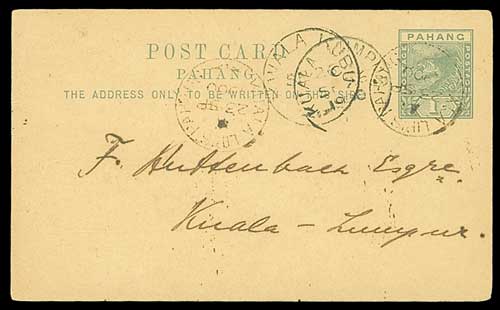 PAHANG
POST CARD
PAHANG
THE ADDRESS ONLY TO BE WRITTEN ON THIS SIDE
KUALA KUBU
KUALA
F. Huttenbach Esqre.
Kuala-Lumpur.